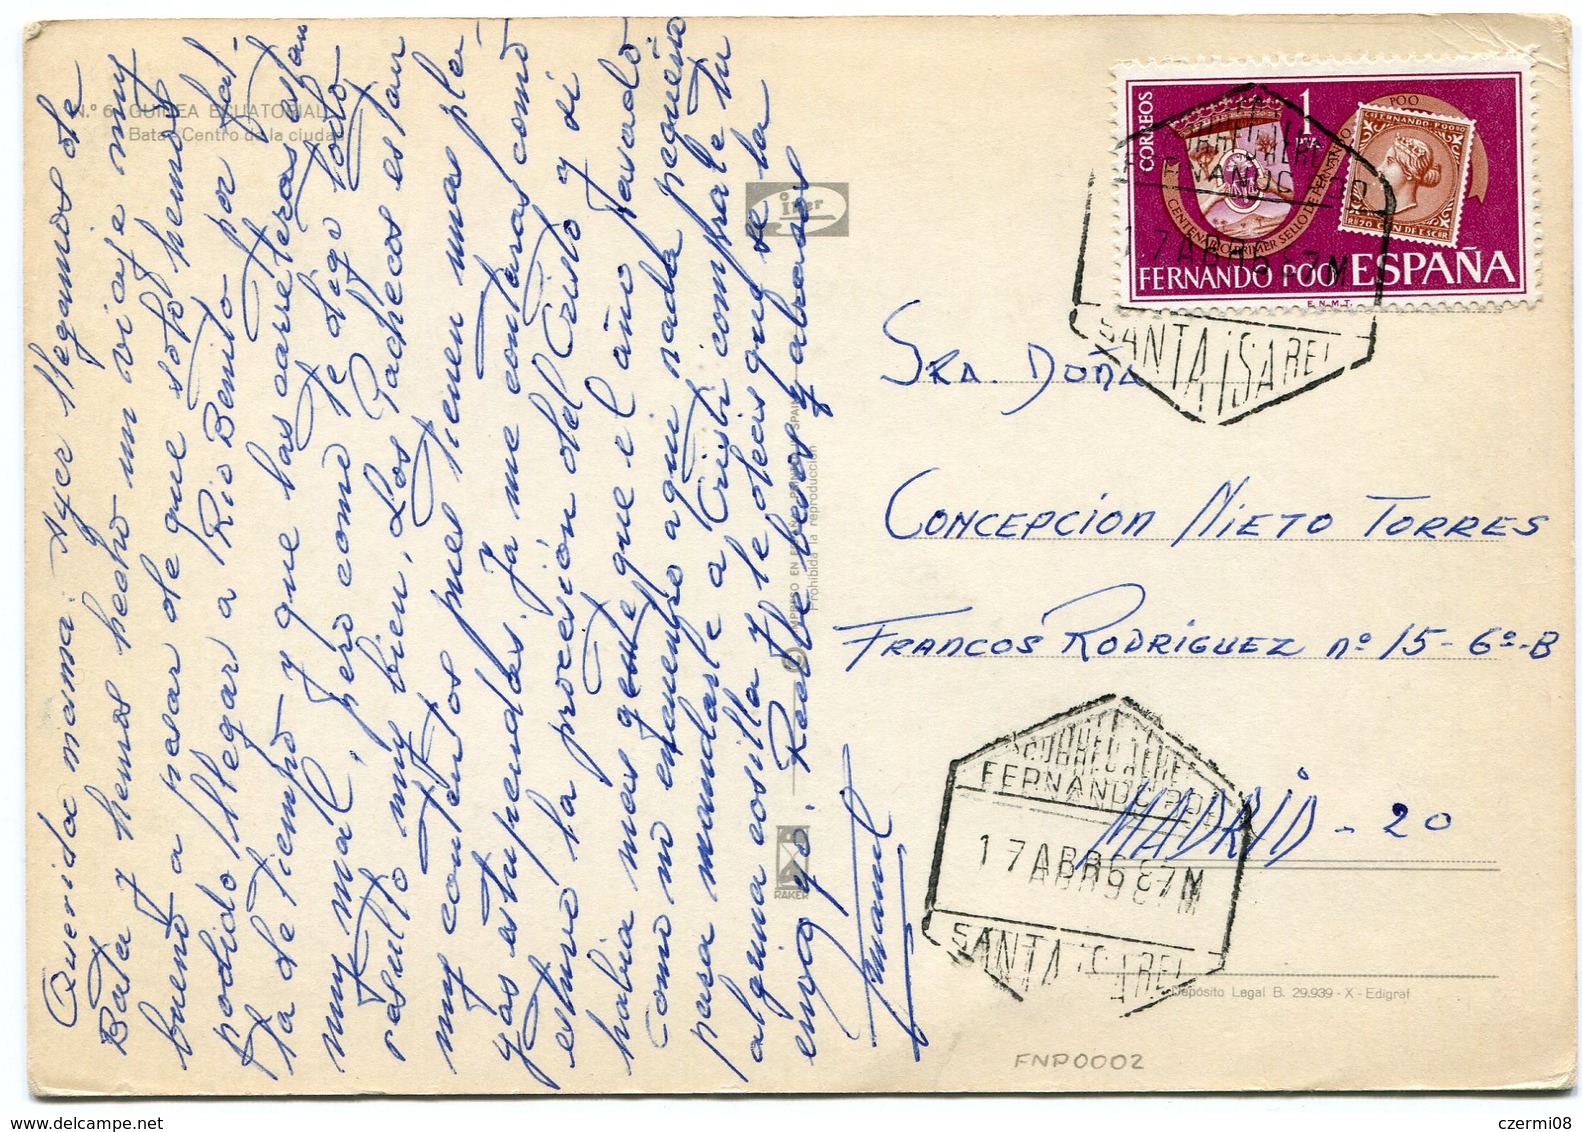 Nº 6 GUINEA ECUATORIAL
Bata. Centro de la ciudad
Querida mama: Ayer llegamos de
Bata y hemos hecho un viaje muy
bueno a pesar de que solo hemos
podido llegar a Rio Benito por fal-
ta de tiempo y que las carreteras estan
muy mal, pero como te digo todo
resulto muy bien, Los Pachecos estan
muy contentos pues tienen unas pla-
yas estupendas. Ya me contaras como
estuvo la procesión del Cristo y si
habia mas gente que el año pasado
como no encuentro aqui nada
para mandarle a Cristi comprale tu
alguna cosilla y le decis que se la
envio yo. Recibe besos y abrazos
Juanel
IMPRESO EN ESPAÑA
Prohibida la reproducción
RAKER
CORREOS
1
PTA
POO
FERNANDO POO
CENTENARIO PRIMER SELLO DE FERNANDO POO
FERNANDO POO ESPAÑA
E.N.M.T.
CORREO AEREO
FERNANDO POO
17 ABR 68 7M
SANTA ISABEL
SRA. DOÑA
CONCEPCION NIETO TORRES
FRANCOS RODRIGUEZ nº 15-6º-B
MADRID - 20
CORREO AEREO
FERNANDO POO
17 ABR 68 7M
SANTA ISABEL
Depósito Legal B. 29.939 - X - Edigraf
FNP0002
www.delcampe.net
czermi08